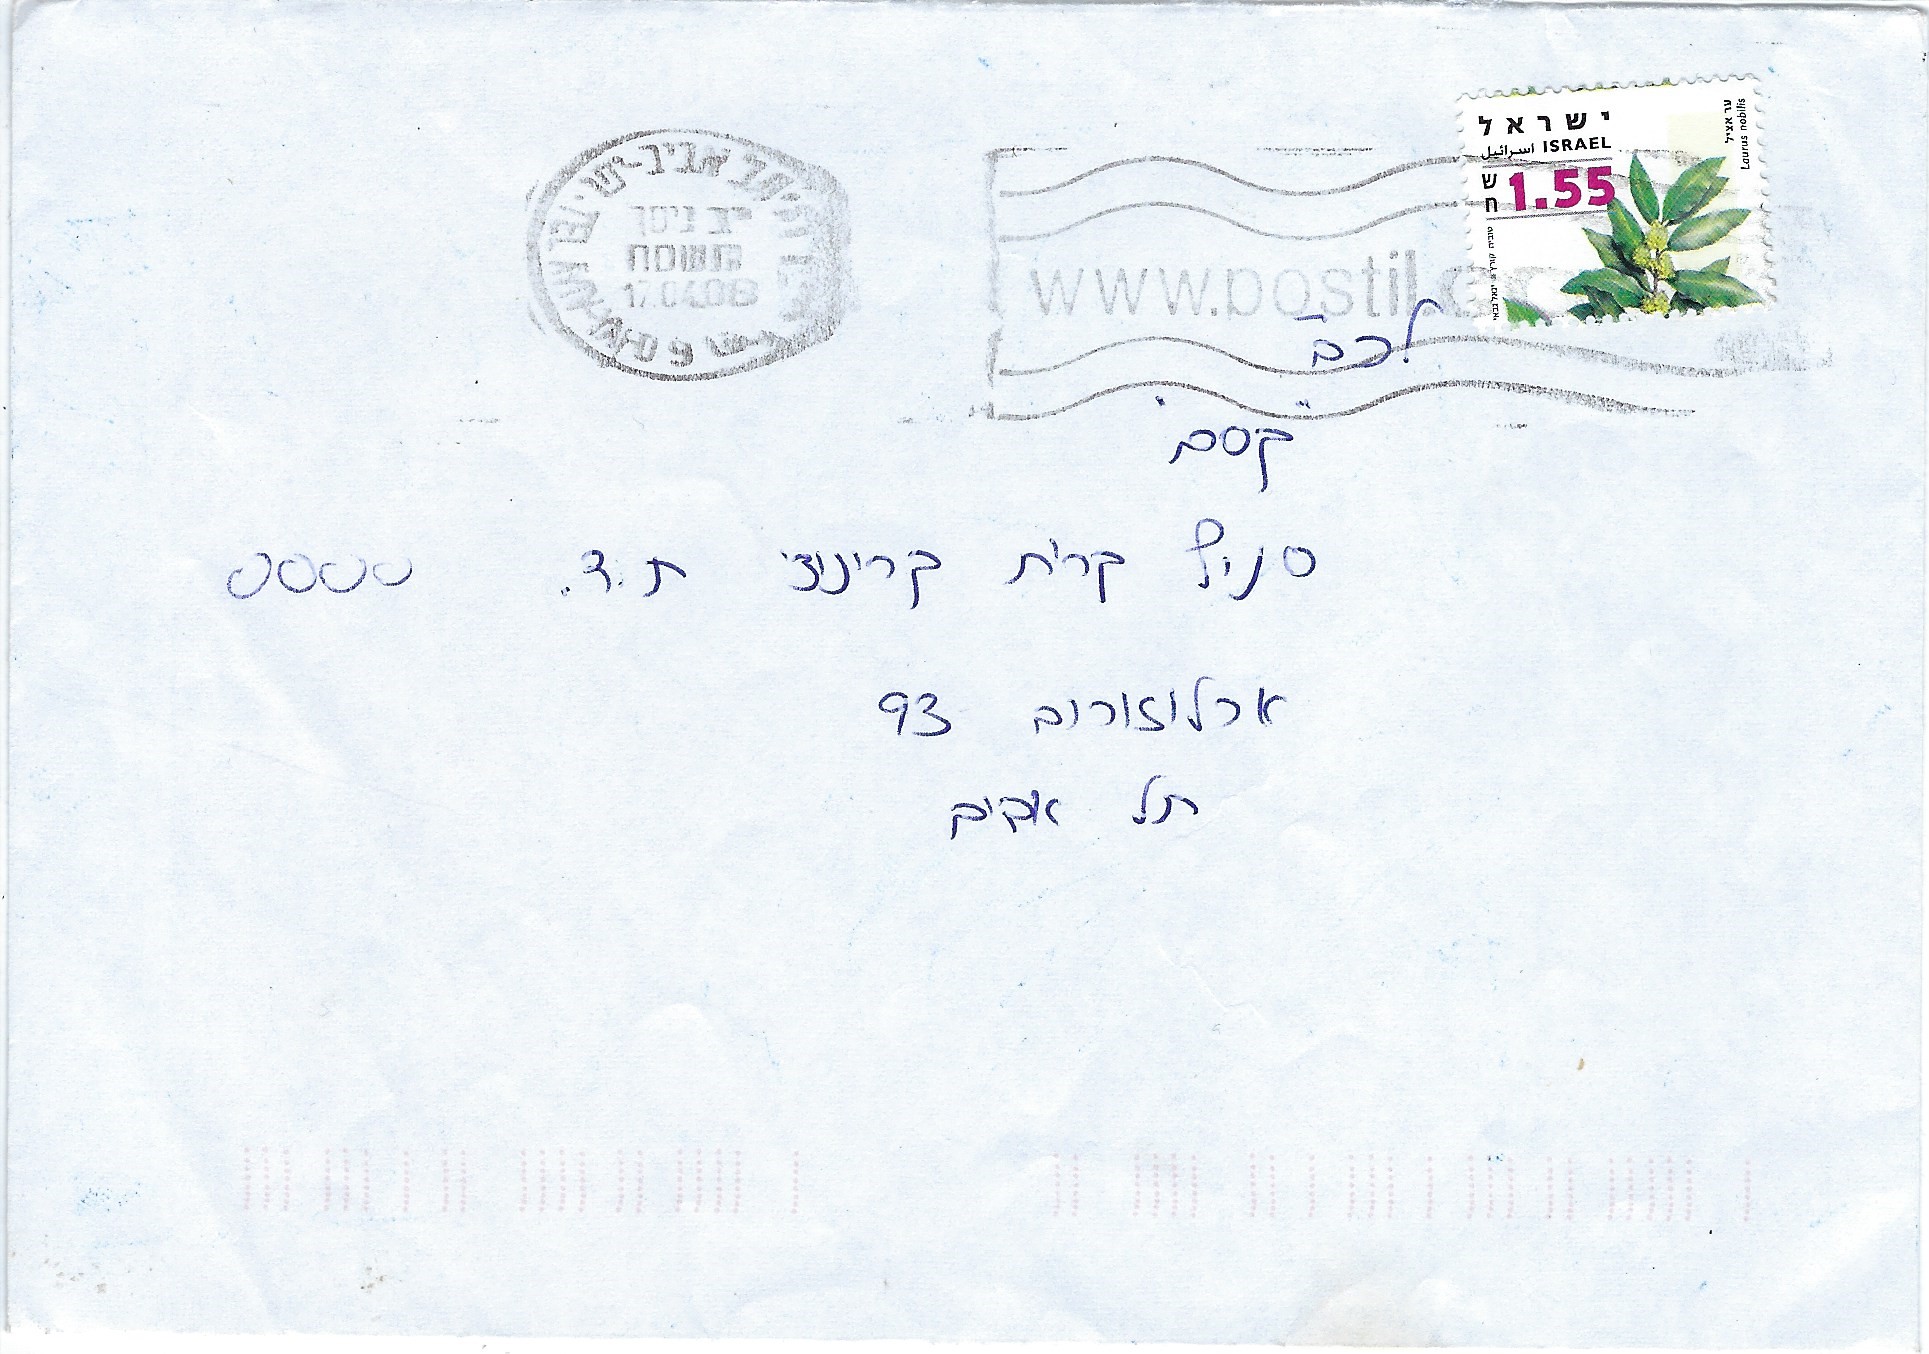 ישראל
اسرائيل ISRAEL
ש"ח 1.55
ער אציל
Laurus nobilis
תל אביב-יפו
יב ניסן
תשסח
17.04.08
www.postil.c
לכב'
"קסם"
סניף קרית קריניצי ת.ד. 0000
ארלוזורוב 93
תל אביב